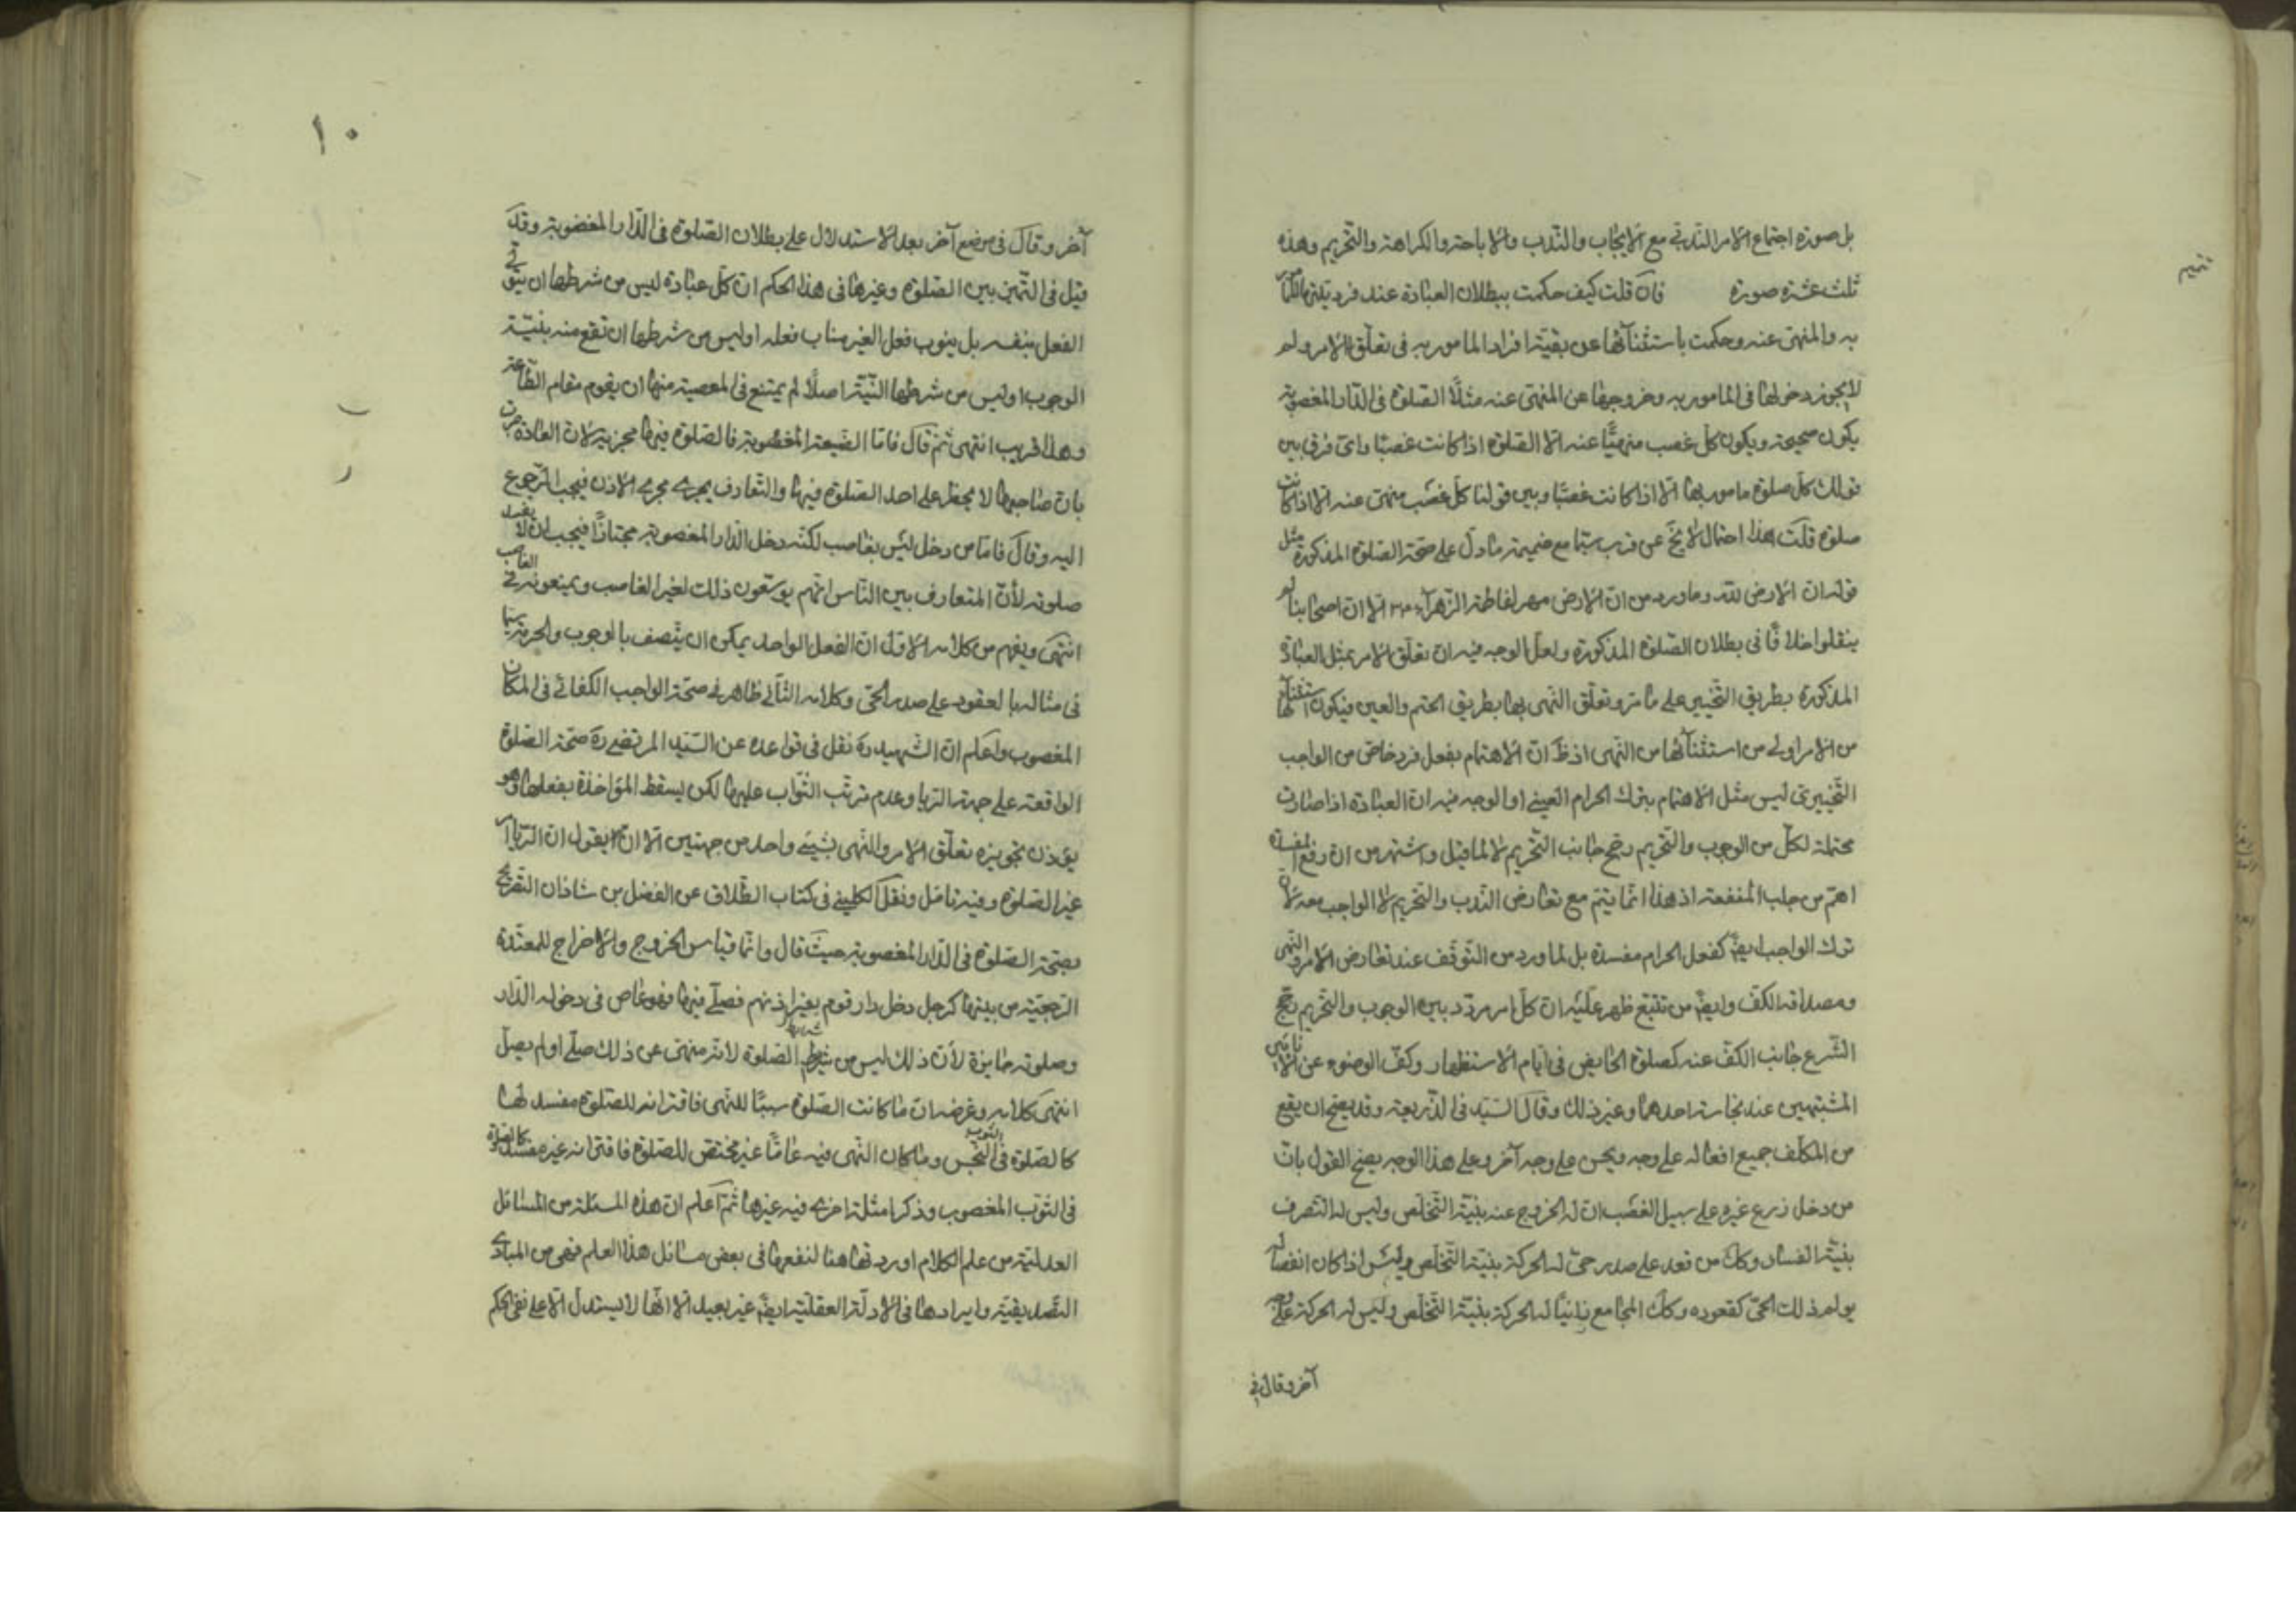 بل صورة اجتماع الامر الندبي مع الايجاب والندب والاباحة والكراهة والتحريم وهذه
ثلث عشرة صورة فان قلت كيف حكمت ببطلان العبادة عند فرديتها للمأمور
به والمنهي عنه وحكمت باستثنائها عن بقية افراد المامور به في تعلق الامر ولم
لا يجوز دخولها في المامور به وخروجها عن المنهي عنه مثلا الصلوة في الدار المغصوبة
يكون صحيحة ويكون كل غصب منهيا عنه الا الصلوة اذا كانت غصبا واي فرق بين
قولك كل صلوة مامور بها الا اذا كانت غصبا وبين قولنا كل غصب منهي عنه الا اذا كانت
صلوة قلت هذا احتمال لا يخ عن قرب سيما مع ضميمة ما دل على صحة الصلوة المذكورة مثل
قوله ان الارض لله وما ورد من ان الارض مهر لفاطمة الزهراء الا ان اصحابنا لم
ينقلوا خلافا في بطلان الصلوة المذكورة ولعل الوجه فيه ان تعلق الامر بمثل العبادة
المذكورة بطريق التخيير على ما مر وتعلق النهي بها بطريق الحتم والعين فيكون استثنائها
من الامر اولى من استثنائها من النهي اذ ظ ان الاهتمام بفعل فرد خاص من الواجب
التخييري ليس مثل الاهتمام بترك الحرام العيني او الوجه فيه ان العبادة اذا صارت
محتملة لكل من الوجوب والتحريم رجح جانب التحريم لا لما قيل واشتهر من ان دفع المفسدة
اهم من جلب المنفعة اذ هذا انما يتم مع تعارض الندب والتحريم لا الواجب معه لان
ترك الواجب ايض كفعل الحرام مفسدة بل لما ورد من التوقف عند تعارض الامر والنهي
ومصداقه الكف وايض من تتبع ظهر عليه ان كل امر مردد بين الوجوب والتحريم رجح
الشرع جانب الكف عنه كصلوة الحايض في ايام الاستظهار وكف الوضوء عن الانائين
المشتبهين عند نجاسة احدهما وغير ذلك وقال السيد في الذريعة وقد يصح ان يقبح
من المكلف جميع افعاله على وجه ويحسن على وجه آخر وعلى هذا الوجه يصح القول بان
من دخل زرع غيره على سبيل الغصب ان له الخروج عنه بنية التخلص وليس له التصرف
بنية الفساد وكك من قعد على صدر حي له الحركة بنية التخلص وليس اذا كان انفصاله
يولم ذلك الحي كقعوده وكك المجامع زانيا له الحركة بنية التخلص وليس له الحركة على وجه
آخر وقال في
١٠
آخر وقال في موضع آخر بعد الاستدلال على بطلان الصلوة في الدار المغصوبة وقد
قيل في التمييز بين الصلوة وغيرها في هذا الحكم ان كل عبادة ليس من شرطها ان يتولى
الفعل بنفسه بل ينوب فعل الغير مناب فعله او ليس من شرطها ان تقع منه بنية
الوجوب او ليس من شرطها النية اصلا لم يمتنع في المعصية منها ان يقوم مقام الطاعة
وهذا قريب انتهى ثم قال فاما الضيعة المغصوبة فالصلوة فيها مجزية لان العادة جرت
بان صاحبها لا يحظر على احد الصلوة فيها والتعارف يجري مجرى الاذن فيجب الرجوع
اليه وقال فاما من دخل ليس بغاصب لكنه دخل الدار المغصوبة مجتازا فيجب ان لا يفسد
صلوته لأن المتعارف بين الناس انهم يوسعون ذلك لغير الغاصب ويمنعونه في الغاصب
انتهى ويفهم من كلامه الاول ان الفعل الواحد يمكن ان يتصف بالوجوب والحرمة سيما
في مثاله بالعقود على صدر الحي وكلامه الثاني ظاهر في صحة الواجب الكفائي في المكان
المغصوب واعلم ان الشهيد ره نقل في قواعده عن السيد المرتضى ره صحة الصلوة
الواقعة على جهة الريا وعدم ترتب الثواب عليها لكن يسقط المؤاخذة بفعلها وهو
يؤذن تجويزه تعلق الامر والنهي بشيء واحد من جهتين الا ان يقول ان الرياء
غير الصلوة وفيه تامل ونقل الكليني في كتاب الطلاق عن الفضل بن شاذان التصريح
بصحة الصلوة في الدار المغصوبة حيث قال وانما قياس الخروج والاخراج للمعتدة
الرجعية من بيتها كرجل دخل دار قوم بغير اذنهم فصلى فيها فهو عاص في دخوله الدار
وصلوته جايزة لأن ذلك ليس من شرايط الصلوة لانه منهي عن ذلك صلى او لم يصل
انتهى كلامه وغرضه ان ما كانت الصلوة سببا للنهي فاقترانه للصلوة مفسد لها
كالصلوة في الثوب النجس وما كان النهي فيه عاما غير مختص للصلوة فاقترانه غير مفسد كالصلوة
في الثوب المغصوب وذكر امثلة اخرى فيه غيرها ثم اعلم ان هذه المسئلة من المسائل
العدلية من علم الكلام اوردتها هنا لنفعها في بعض مسائل هذا العلم فهي من المبادي
التصديقية وايرادها في الادلة العقلية ايض غير بعيد الا انها لا يستدل الا على نفي الحكم